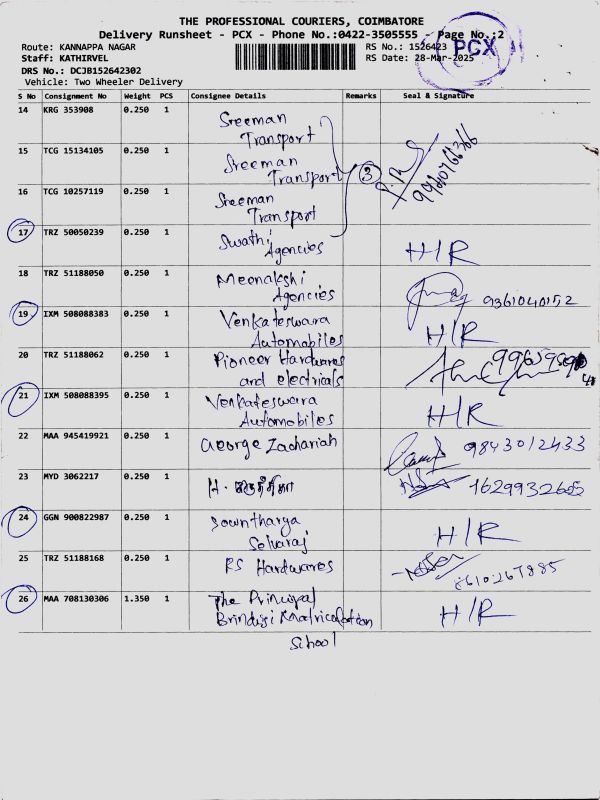 THE PROFESSIONAL COURIERS, COIMBATORE
Delivery Runsheet - PCX - Phone No.:0422-3505555 - Page No.:2
Route: KANNAPPA NAGAR RS No.: 1526423
Staff: KATHIRVEL RS Date: 28-Mar-2025
PCX
DRS No.: DCJB152642302
Vehicle: Two Wheeler Delivery
S No Consignment No Weight PCS Consignee Details Remarks Seal & Signature
14 KRG 353908 0.250 1 Sreeman
Transport
15 TCG 15134105 0.250 1 Sreeman
Transport 3
16 TCG 10257119 0.250 1 Sreeman
Transport
17 TRZ 50050239 0.250 1 Swathi
Agencies H/R
18 TRZ 51188050 0.250 1 Meenakshi
Agencies 9361040152
19 IXM 508088383 0.250 1 Venkateswara
Automobiles H/R
20 TRZ 51188062 0.250 1 Pioneer Hardwares
and electricals
21 IXM 508088395 0.250 1 Venkateswara
Automobiles H/R
22 MAA 945419921 0.250 1 George Zachariah 9843012433
23 MYD 3062217 0.250 1 H. 1629932605
24 GGN 900822987 0.250 1 Sowntharya
Selvaraj H/R
25 TRZ 51188168 0.250 1 RS Hardwares
8610267885
26 MAA 708130306 1.350 1 The Principal
Brindisi Matriculation H/R
School